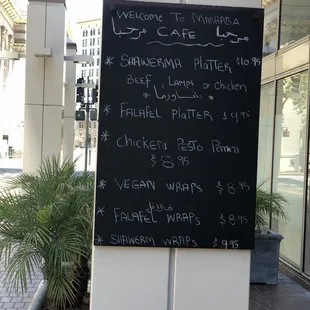 Welcome To Marhaba
مرحبا CAFE مرحبا
* SHAWERMA PlaTTER $10.95
BEEF, LAMPS or Chicken
* شاورما *
* FALAFEL PlaTTER $9.95
* Chicken Pesto Panini
$8.95
* VEGAN WRAPS $8.95
فلافل
* FALAFEL WRAPS $8.95
* SHAWERM WRAPS $9.95